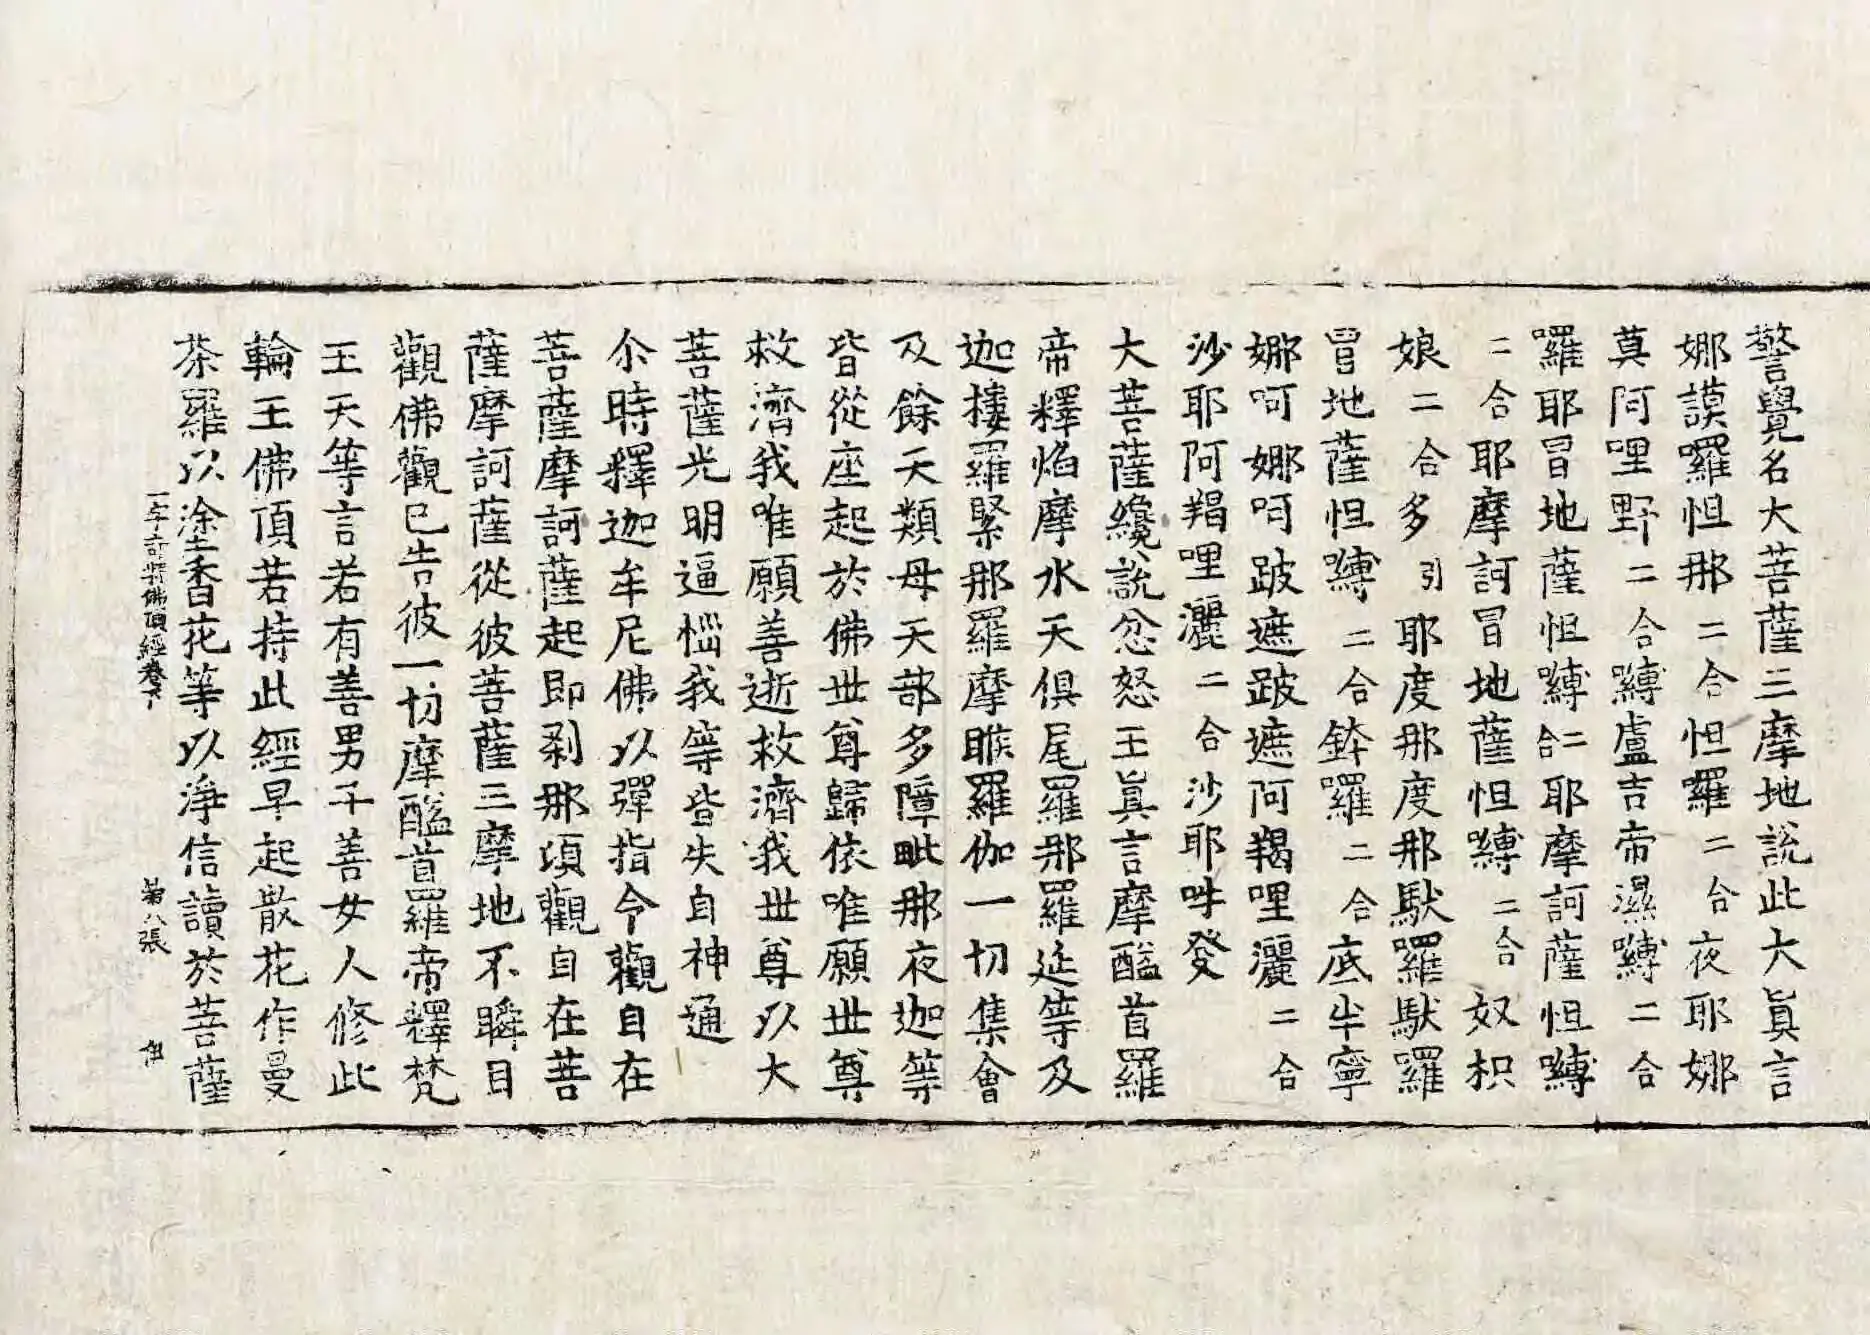 警覺名大菩薩三摩地說此大眞言
娜謨羅怛那二合怛羅二合夜耶娜
莫阿哩野二合嚩盧吉帝濕嚩二合
囉耶冒地薩怛嚩二合耶摩訶薩怛嚩
二合耶摩訶冒地薩怛嚩二合奴枳
娘二合多引耶度那度那馱羅馱羅
冒地薩怛嚩二合鉢羅二合底半寧
娜呵娜呵跛遮跛遮阿羯哩灑二合
沙耶阿羯哩灑二合沙耶吽發
大菩薩纔說忿怒王眞言摩醯首羅
帝釋焰摩水天俱尾羅那羅延等及
迦樓羅緊那羅摩睺羅伽一切集會
及餘天類母天部多障毗那夜迦等
皆從座起於佛世尊歸依唯願世尊
救濟我唯願善逝救濟我世尊以大
菩薩光明逼惱我等皆失自神通
尒時釋迦牟尼佛以彈指令觀自在
菩薩摩訶薩起即刹那頃觀自在菩
薩摩訶薩從彼菩薩三摩地不瞬目
觀佛觀已告彼一切摩醯首羅帝釋梵
王天等言若有善男子善女人修此
輪王佛頂若持此經早起散花作曼
茶羅以塗香花等以淨信讀於菩薩
一字奇特佛頂經卷下 第八張 伊